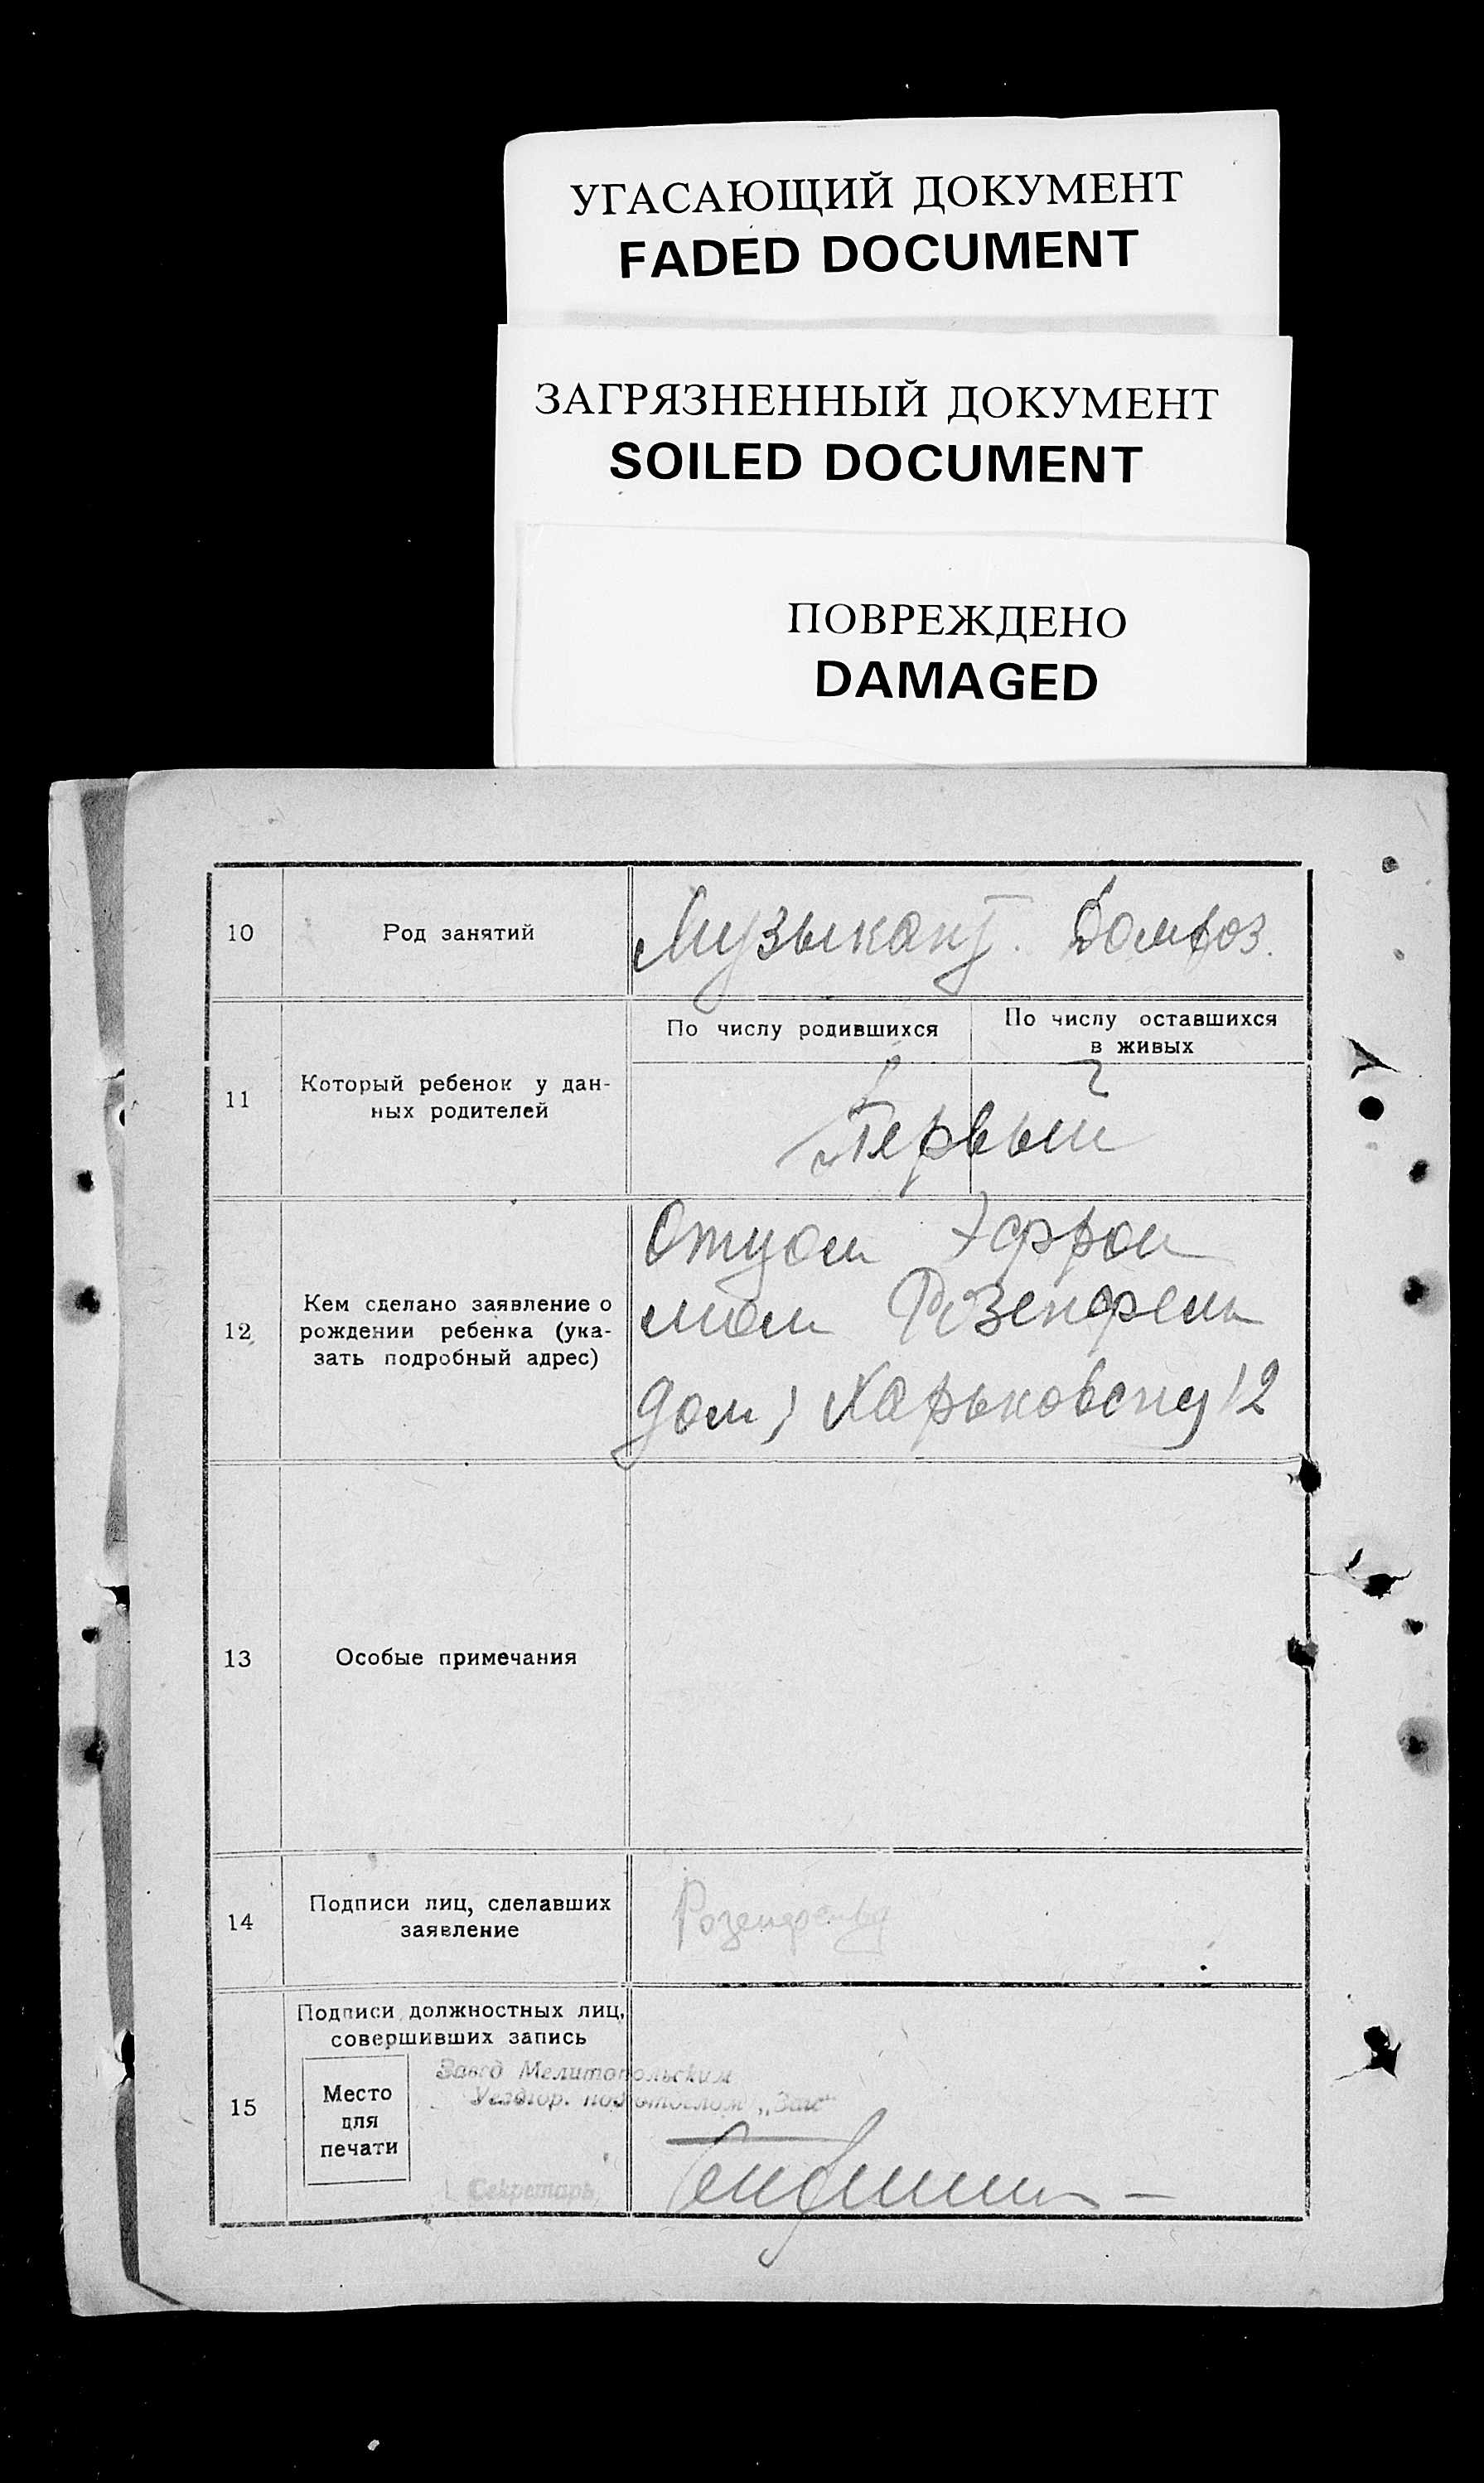 УГАСАЮЩИЙ ДОКУМЕНТ
FADED DOCUMENT
ЗАГРЯЗНЕННЫЙ ДОКУМЕНТ
SOILED DOCUMENT
ПОВРЕЖДЕНО
DAMAGED
10 Род занятий Музыкант. Домхоз.
По числу родившихся По числу оставшихся
в живых
11 Который ребенок у дан-
ных родителей
Первый
12 Кем сделано заявление о
рождении ребенка (ука-
зать подробный адрес)
Отцом Эфрои
мом Розенфель
дом, Харьковску 12
13 Особые примечания
14 Подписи лиц, сделавших
заявление
Розенфельд
15 Подписи должностных лиц,
совершивших запись
Место
для
печати
Завед Мелитопольским
Уездгор. подотделом „Загс“
Секретарь